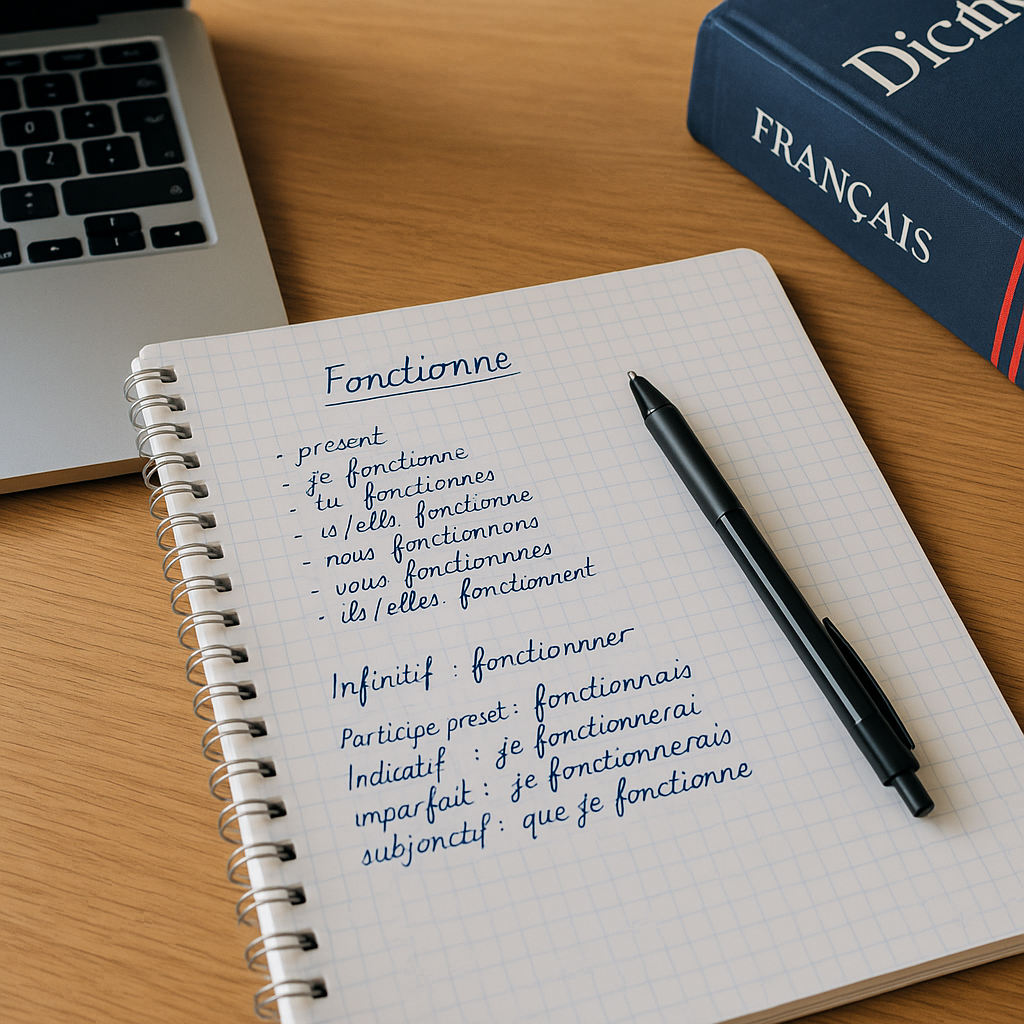 Diction
FRANÇAIS
Fonctionne
- present
- je fonctionne
- tu fonctionnes
- is/ells. fonctionne
- nous fonctionnons
- vous fonctionnnes
- ils/elles. fonctionnent
Infinitif : fonctionnner
Participe preset : fonctionnais
Indicatif : je fonctionnerai
imparfait : je fonctionnerais
subjonctif : que je fonctionne